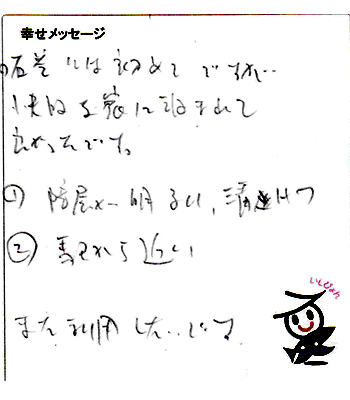 幸せメッセージ
石巻には初めてですが…
快的な宿に泊まれて
良かったです。
① 部屋が明るい、清潔
② 駅から近い
また利用したいです
いしぴょん